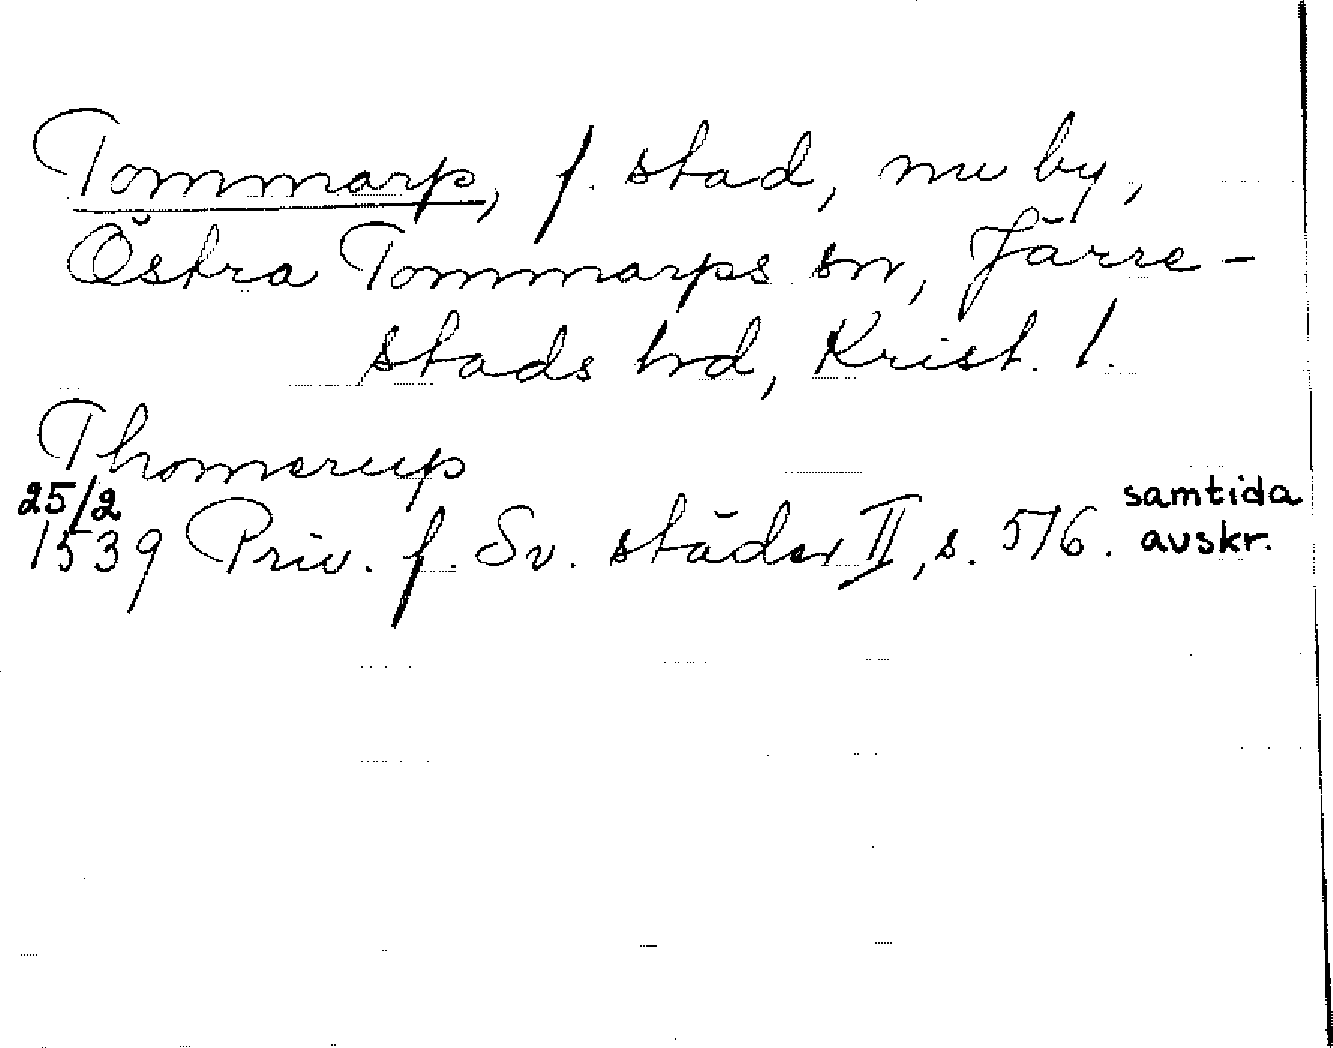 Tommarp, f. stad, nu by,
Östra Tommarps sn, Järre-
stads hd, Krist. l.
Thomerup
25/2
1539 Priv. f. Sv. städer II, s. 516. samtida
avskr.